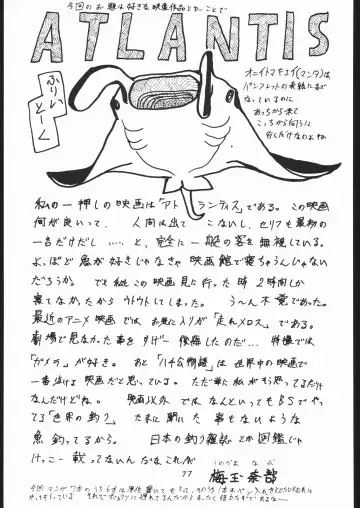 今回のお題は好きな映像作品とゆーことで
ATLANTIS
ふりぃ
とーく
オニイトマキエイ(マンタ)は
パンフレットの表紙にまで
なっているのに
あっちから来て
こっちから向うに
行くだけなのよね
私の一押しの映画は「アトランティス」である。この映画
何が良いって、人間は出てこないし、セリフも最初の
一言だけだし……と、完全に一般の客を無視している。
よっぽど魚が好きじゃなきゃ映画館で寝ちゃうんじゃない
だろうか。でも私この映画見に行った時2時間しか
寝てなかったからウトウトしてしまった。う〜ん不覚であった。
最近のアニメ映画ではお気に入りが「走れメロス」である。
劇場で見なかった事をすげー後悔したのだ…特撮では
「ガメラ」が好き。あと「ハチ公物語」は世界中の映画で
一番泣ける映画だと思っているよ。ただ単に私がそう思ってるだけ
なんだけどね。映画以外ではなんといってもBSでやっ
てる「世界の釣り」たまに聞いた事もないような
魚釣ってるから。日本の釣り雑誌とか図鑑じゃ
けっこー載ってないんだなこれが
77
梅玉奈部
今回マンガ7本のうち6本は